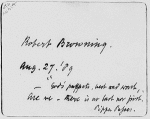 Robert Browning.
Aug. 27. '89
"God's puppets, best and worst,
Are we - there is no last nor first.
Pippa Passes.